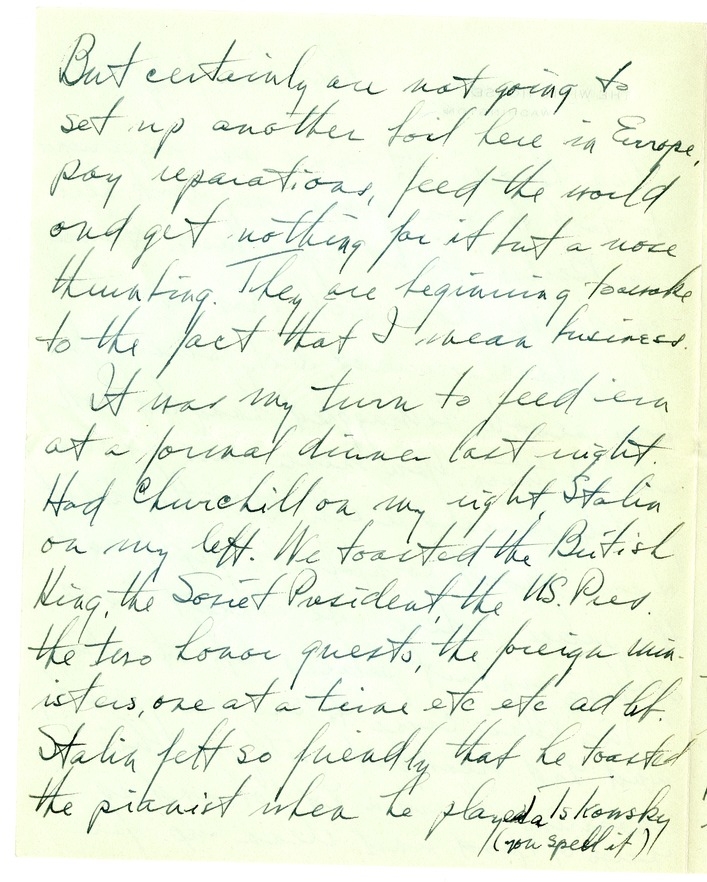 But certainly are not going to
set up another foil here in Europe,
pay reparations, feed the world
and get nothing for it but a nose
thumbing. They are beginning to awake
to the fact that I mean business.
It was my turn to feed 'em
at a formal dinner last night.
Had Churchill on my right, Stalin
on my left. We toasted the British
King, the Soviet President, the US. Pres.
the two honor guests, the foreign min-
isters, one at a time etc etc ad lib.
Stalin felt so friendly that he toasted
the pianist when he played a Tskowsky
(you spell it)